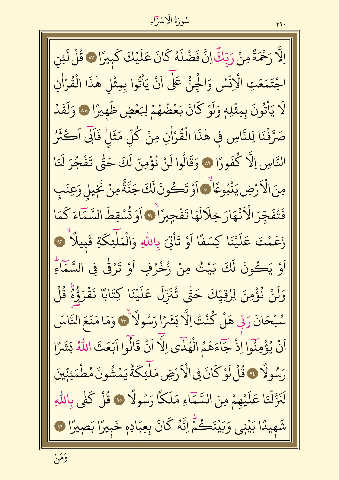 سُورَةُ الْاِسْرَٓاءِ
٢٩٠
اِلَّا رَحْمَةً مِنْ رَبِّكَۜ اِنَّ فَضْلَهُ كَانَ عَلَيْكَ كَبٖيرًا ﴿٨٧﴾ قُلْ لَئِنِ
اجْتَمَعَتِ الْاِنْسُ وَالْجِنُّ عَلٰٓى اَنْ يَأْتُوا بِمِثْلِ هٰذَا الْقُرْاٰنِ
لَا يَأْتُونَ بِمِثْلِهٖ وَلَوْ كَانَ بَعْضُهُمْ لِبَعْضٍ ظَهٖيرًا ﴿٨٨﴾ وَلَقَدْ
صَرَّفْنَا لِلنَّاسِ فٖي هٰذَا الْقُرْاٰنِ مِنْ كُلِّ مَثَلٍ فَاَبٰٓى اَكْثَرُ
النَّاسِ اِلَّا كُفُورًا ﴿٨٩﴾ وَقَالُوا لَنْ نُؤْمِنَ لَكَ حَتّٰى تَفْجُرَ لَنَا
مِنَ الْاَرْضِ يَنْبُوعًاۙ ﴿٩٠﴾ اَوْ تَكُونَ لَكَ جَنَّةٌ مِنْ نَخٖيلٍ وَعِنَبٍ
فَتُفَجِّرَ الْاَنْهَارَ خِلَالَهَا تَفْجٖيرًاۙ ﴿٩١﴾ اَوْ تُسْقِطَ السَّمَٓاءَ كَمَا
زَعَمْتَ عَلَيْنَا كِسَفًا اَوْ تَأْتِيَ بِاللّٰهِ وَالْمَلٰٓئِكَةِ قَبٖيلًاۙ ﴿٩٢﴾
اَوْ يَكُونَ لَكَ بَيْتٌ مِنْ زُخْرُفٍ اَوْ تَرْقٰى فِي السَّمَٓاءِۜ
وَلَنْ نُؤْمِنَ لِرُقِيِّكَ حَتّٰى تُنَزِّلَ عَلَيْنَا كِتَابًا نَقْرَؤُ۬هُۜ قُلْ
سُبْحَانَ رَبّٖي هَلْ كُنْتُ اِلَّا بَشَرًا رَسُولًا ﴿٩٣﴾ وَمَا مَنَعَ النَّاسَ
اَنْ يُؤْمِنُٓوا اِذْ جَٓاءَهُمُ الْهُدٰٓى اِلَّٓا اَنْ قَالُٓوا اَبَعَثَ اللّٰهُ بَشَرًا
رَسُولًا ﴿٩٤﴾ قُلْ لَوْ كَانَ فِي الْاَرْضِ مَلٰٓئِكَةٌ يَمْشُونَ مُطْمَئِنّٖينَ
لَنَزَّلْنَا عَلَيْهِمْ مِنَ السَّمَٓاءِ مَلَكًا رَسُولًا ﴿٩٥﴾ قُلْ كَفٰى بِاللّٰهِ
شَهٖيدًا بَيْنٖي وَبَيْنَكُمْۜ اِنَّهُ كَانَ بِعِبَادِهٖ خَبٖيرًا بَصٖيرًا ﴿٩٦﴾
وَمَنْ